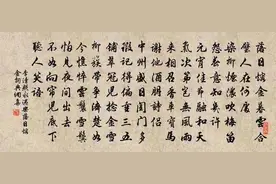 落日熔金暮雲合
璧人在何處
染柳煙濃吹梅笛
怨春意知幾許
元宵佳節融和天
氣次第豈無風雨
來相召香車寶馬
謝他酒朋詩侶
中州盛日閨門多
暇記得偏重三五
鋪翠冠兒捻金雪
柳簇帶爭濟楚如
今憔悴風鬟雪鬢
怕見夜間出去
不如向簾兒底下
聽人笑語
李清照永遇樂落日熔
金詞